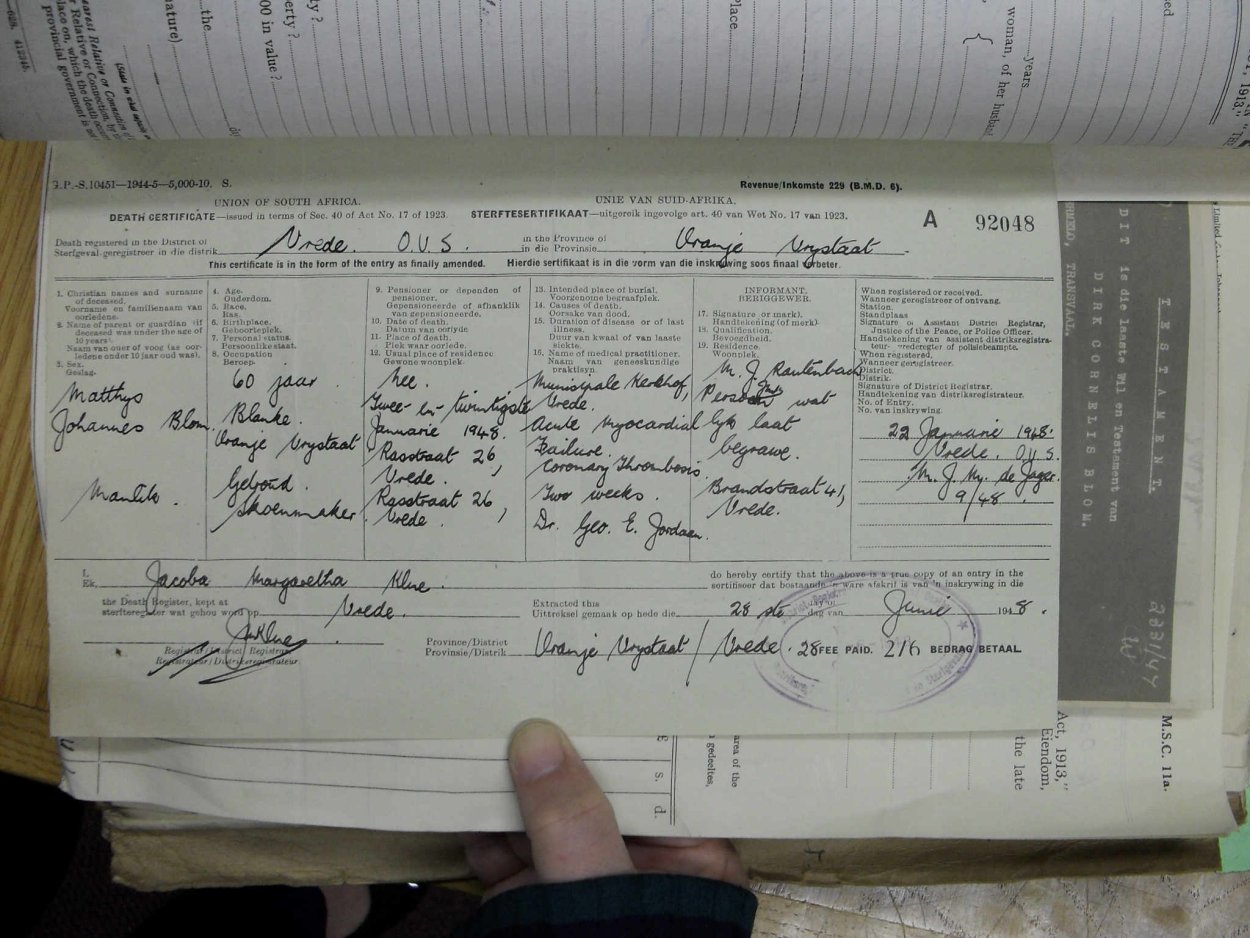 years
woman, of her husband
Place
000 in value ?
erty ?
ty ?
the
ature)
earest Relative or Connection
r Relative or Connection, by
place on, which the death occurs
provincial government is not
J.P.-S.10451—1944-5—5,000-10. S.
Revenue/Inkomste 229 (B.M.D. 6).
UNION OF SOUTH AFRICA.
UNIE VAN SUID-AFRIKA.
DEATH CERTIFICATE—issued in terms of Sec. 40 of Act No. 17 of 1923.
STERFTESERTIFIKAAT—uitgereik ingevolge art. 40 van Wet No. 17 van 1923.
A 92048
Death registered in the District of
Sterfgeval geregistreer in die distrik
Vrede. O.V.S.
in the Province of
in die Provinsie
Oranje Vrystaat
This certificate is in the form of the entry as finally amended.
Hierdie sertifikaat is in die vorm van die inskrywing soos finaal verbeter.
1. Christian names and surname
of deceased.
Voorname en familienaam van
oorledene.
2. Name of parent or guardian (if
deceased was under the age of
10 years).
Naam van ouer of voog (as oor-
ledene onder 10 jaar oud was).
3. Sex.
Geslag.
Matthys
Johannes Blom.
Manlik.
4. Age.
Ouderdom.
5. Race.
Ras.
6. Birthplace.
Geboorteplek.
7. Personal status.
Persoonlike staat.
8. Occupation
Beroep.
60 jaar
Blanke.
Oranje Vrystaat
Getroud.
Skoenmaker
9. Pensioner or dependent of
pensioner.
Gepensioeneerde of afhanklik
van gepensioeneerde.
10. Date of death.
Datum van oorlyde
11. Place of death.
Plek waar oorlede.
12. Usual place of residence
Gewone woonplek.
Nee.
Twee-en-twintigste
Januarie 1948.
Rasstraat 26,
Vrede.
Rasstraat 26,
Vrede.
13. Intended place of burial.
Voorgenome begraafplek.
14. Causes of death.
Oorsake van dood.
15. Duration of disease or of last
illness.
Duur van kwaal of van laaste
siekte.
16. Name of medical practitioner.
Naam van geneeskundige
praktisyn.
Munisipale Kerkhof,
Vrede.
Acute Myocardial
Failure.
Coronary Thrombosis.
Two weeks.
Dr. Geo. E. Jordaan.
INFORMANT.
BERIGGEWER.
17. Signature (or mark).
Handtekening (of merk).
18. Qualification.
Bevoegdheid.
19. Residence.
Woonplek.
M. J. Rautenbach
Persoon wat
lyk laat
begrawe.
Brandstraat 41,
Vrede.
When registered or received.
Wanneer geregistreer of ontvang.
Station.
Standplaas
Signature of Assistant District Registrar,
Justice of the Peace, or Police Officer.
Handtekening van assistent distriksregistra-
teur, vrederegter of polisiebeampte.
When registered.
Wanneer geregistreer.
District.
Distrik.
Signature of District Registrar.
Handtekening van distriksregistrateur.
No. of Entry.
No. van inskrywing.
22 Januarie 1948.
Vrede. O.V.S.
M. J. My. de Jager.
9/48
I,
Ek,
Jacoba Margaretha Klue
do hereby certify that the above is a true copy of an entry in the
sertifiseer dat bostaande 'n ware afskrif is van 'n inskrywing in die
the Death Register, kept at
sterfteregister wat gehou word op
Vrede.
Extracted this
Uittreksel gemaak op hede die
28 ste
day of
dag van
Junie
1948.
JMKlue
Registrar/District Registrar.
Registrateur/Distriksregistrateur
Province/District
Provinsie/Distrik
Oranje Vrystaat / Vrede.
FEE PAID. 2/6 BEDRAG BETAAL.
TESTAMENT.
DIT is die laaste Wil en Testament van
DIRK CORNELIS BLOM.
TRANSVAAL.
M.S.C. 11a.
Act, 1913,"
Eiendom,
the late
area of the
gedeeltes,
s. d.